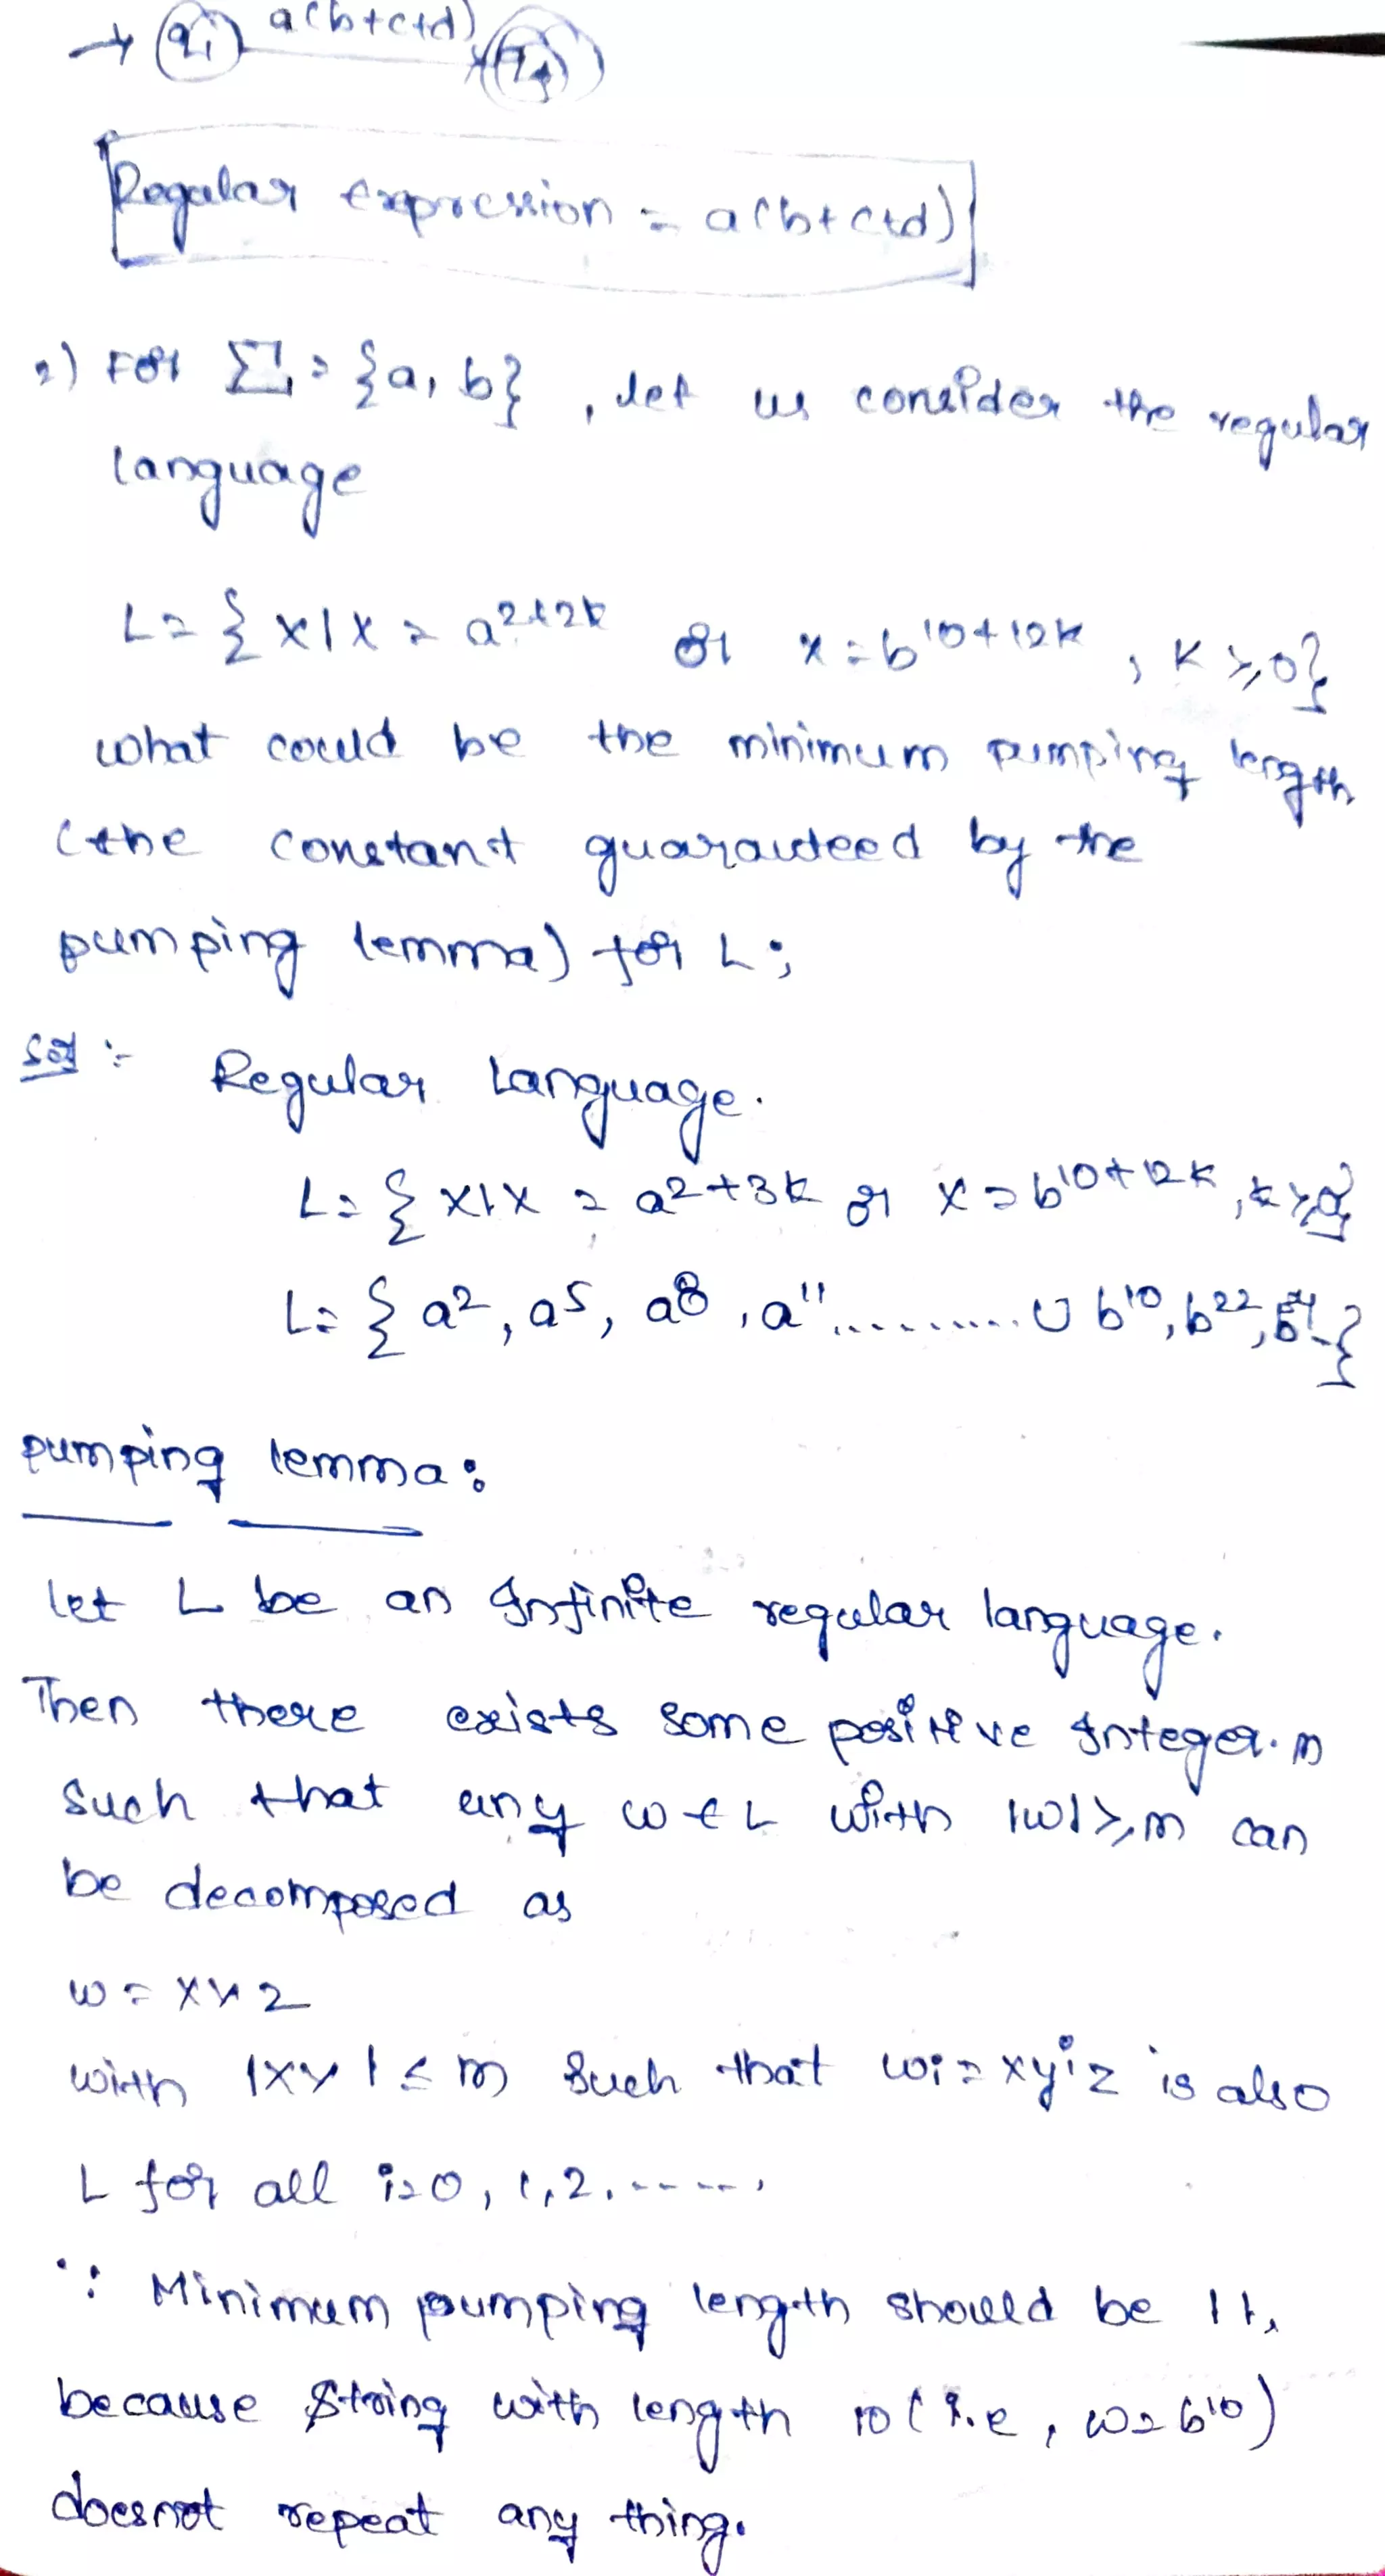 → (qi) a(b+c+d) (qf)
Regular expression = a(b+c+d)
2) For Σ = {a, b} , let us consider the regular
language
L = { x | x = a^2+2k or x = b^10+12k , k ≥ 0}
what could be the minimum pumping length
(the constant guaranteed by the
pumping lemma) for L ;
Sol :- Regular Language.
L = { x | x = a^2+3k or x = b^10+12k , k ≥ 0}
L = { a^2, a^5, a^8, a^11, .......... ∪ b^10, b^22, b^34 .. }
pumping lemma :
let L be an Infinite regular language.
Then there exists some positive Integer. m
such that any w ∈ L with |w| ≥ m can
be decomposed as
w = xyz
with |xy| ≤ m such that wi = xy^iz is also
L for all i = 0, 1, 2, ......
∵ Minimum pumping length should be 11,
because string with length 10 (i.e , w = b^10)
doesnot repeat any thing.